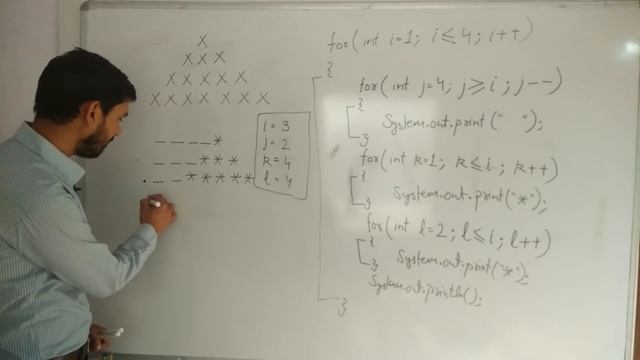 X
X X X
X X X X X
X X X X X X X
_ _ _ _ *
_ _ _ * * *
. _ _ * * * * *
i = 3
j = 2
k = 4
l = 4
for( int i=1; i≤4; i++)
{
for( int j=4; j≥i; j--)
{
System.out.print(" ");
}
for( int k=1; k≤i; k++)
{
System.out.print("*");
}
for( int l=2; l≤i; l++)
{
System.out.print("*");
}
System.out.println();
}